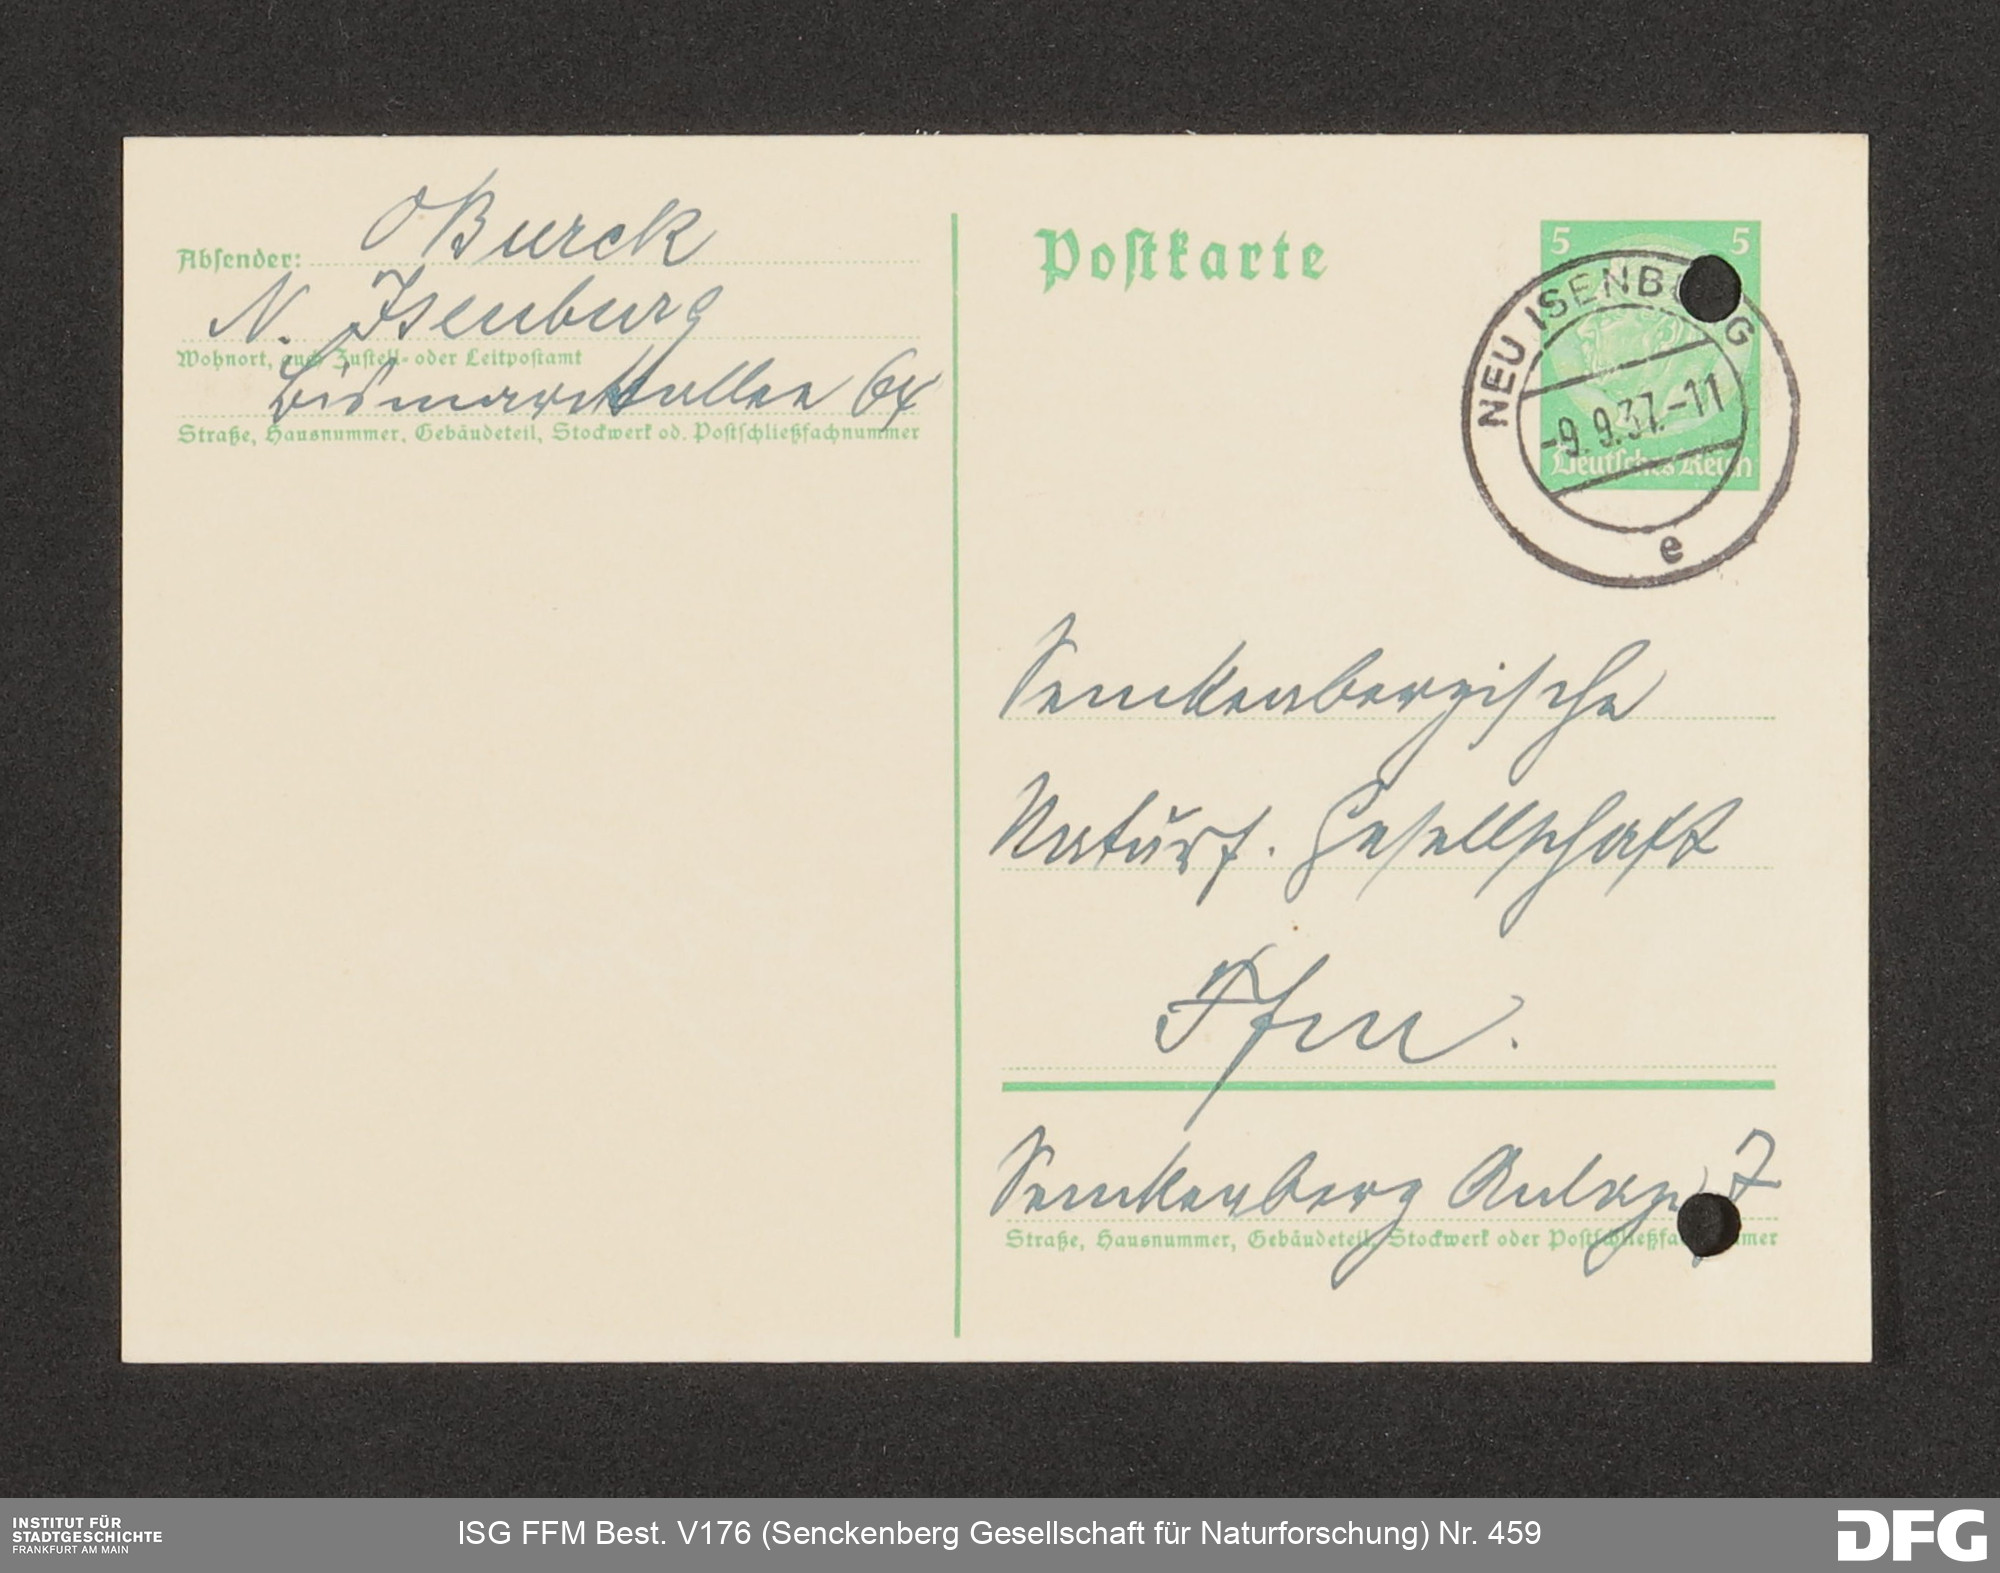 Absender: O Burck
N. Isenburg
Wohnort, auch Zustell- oder Leitpostamt
Bismarckallee
Straße, Hausnummer, Gebäudeteil, Stockwerk od. Postschließfachnummer
Postkarte
5 5
NEU ISENB G
-9.9.37.-11
Deutsches Reich
e
Senckenbergische
Naturf. Gesellschaft
Ffm.
Senckenberg Anlage 7
Straße, Hausnummer, Gebäudeteil, Stockwerk oder Postschließfa mer
INSTITUT FÜR
STADTGESCHICHTE
FRANKFURT AM MAIN
ISG FFM Best. V176 (Senckenberg Gesellschaft für Naturforschung) Nr. 459
DFG